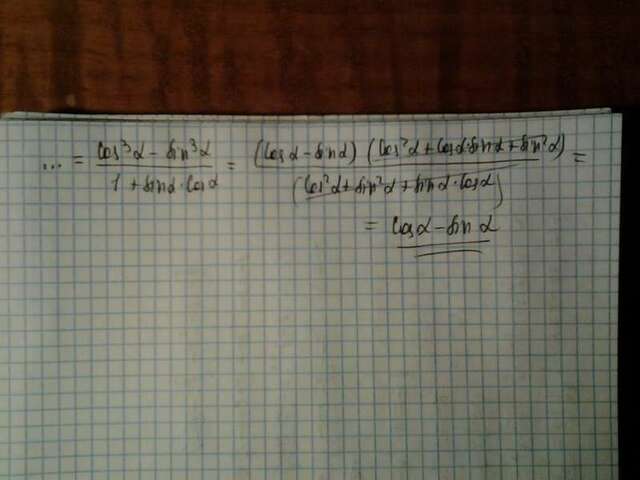 ... = cos³α - sin³α / 1 + sinα·cosα = (cosα - sinα) (cos²α + cosα·sinα + sin²α) / (cos²α + sin²α + sinα·cosα) =
= cosα - sinα